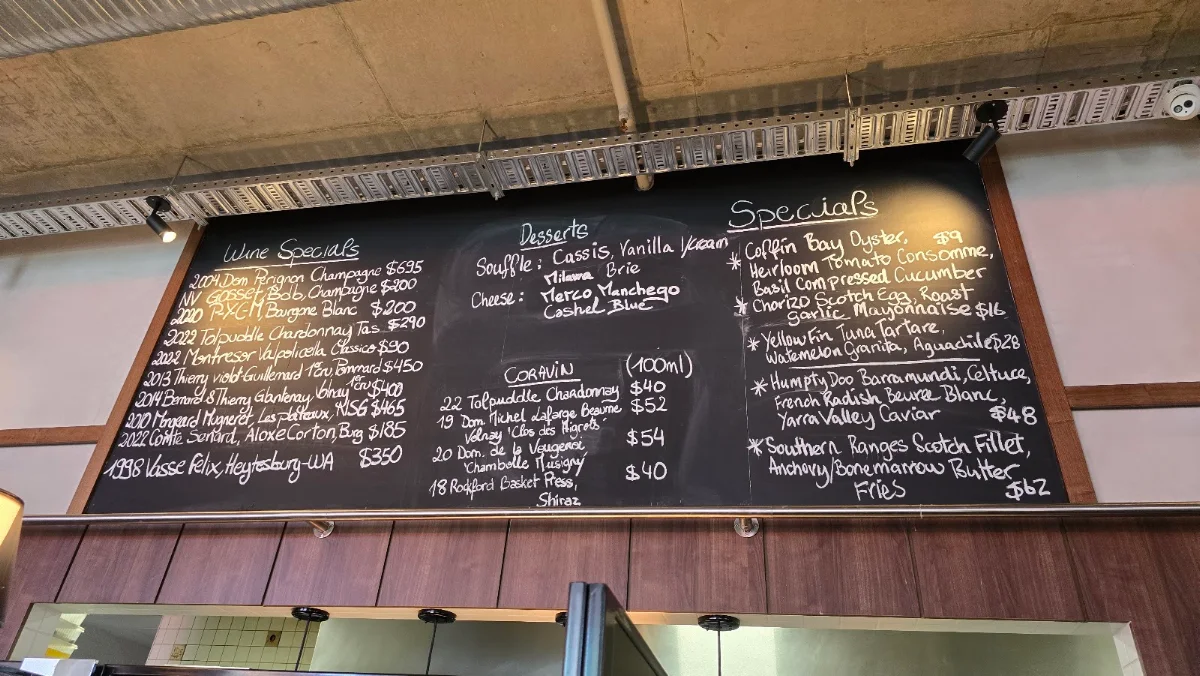 Wine Specials
2004 Dom Perignon Champagne $695
NV GOSSET, Bob, Champagne $200
2020 P-Y-C-M, Bourgone Blanc $200
2022 Tolpuddle Chardonnay Tas $290
2022 Montresor Valpolicella Classico $90
2013 Thierry Violot-Guillemard 1er Cru, Pommard $450
2014 Bernard & Thierry Glantenay, Volnay 1er Cru $400
2010 Mongeard Mugneret, Les plateaux, NSG $465
2022 Comte Senard, Aloxe Corton, Burg $185
1998 Vasse Felix, Heytesbury-WA $350
Desserts
Souffle: Cassis, Vanilla I/cream
Milawa Brie
Cheese: Merco Manchego
Cashel Blue
CORAVIN (100ml)
22 Tolpuddle Chardonnay $40
19 Dom. Michel Lafarge Beaune $52
Volnay 'Clos des
20 Dom. de la Vougeraie $54
'Chambolle Musigny'
18 Rockford Basket Press, $40
Shiraz
Specials
Coffin Bay Oyster, $9
* Heirloom Tomato Consomme,
Basil Compressed Cucumber
* Chorizo Scotch Egg, Roast
garlic Mayonnaise $16
* Yellow Fin Tuna Tartare,
Watemelon Granita, Aguachile $28
* Humpty Doo Barramundi, Celtuce,
French Radish Beurre Blanc,
Yarra Valley Caviar $48
* Southern Ranges Scotch Fillet,
Anchovy/Bonemarrow Butter
Fries $62